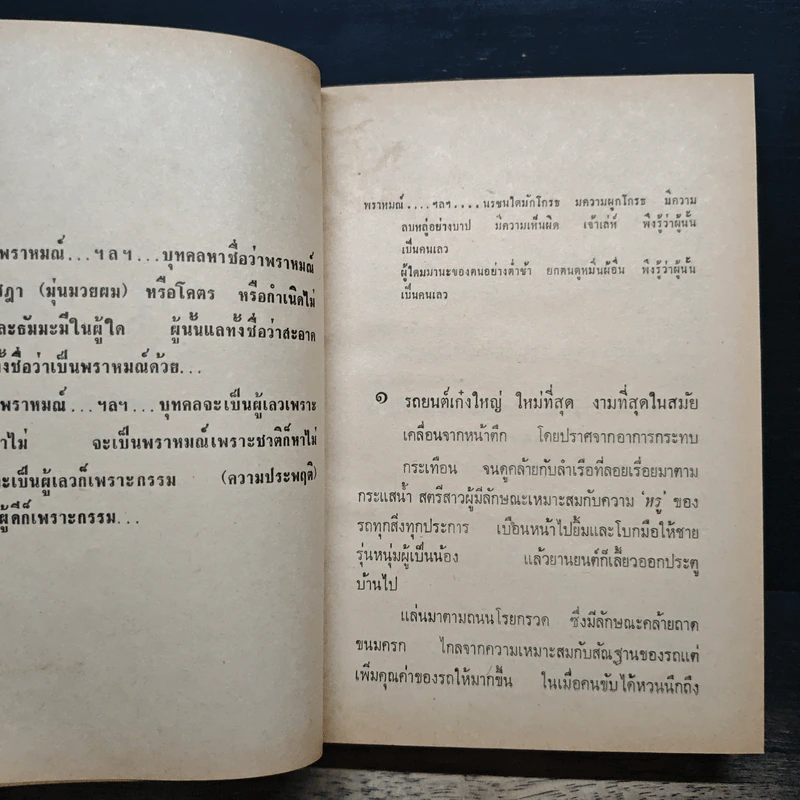 พราหมณ์...ฯลฯ...บุทคลหาชื่อว่าพราหมณ์
ชฎา (มุ่นมวยผม) หรือโคตร หรือกำเนิดไม่
ละธัมมะมีในผู้ใด ผู้นั้นแลทั้งชื่อว่าสะอาด
ทั้งชื่อว่าเป็นพราหมณ์ด้วย...
พราหมณ์...ฯลฯ...บุทคลจะเป็นผู้เลวเพราะ
หาไม่ จะเป็นพราหมณ์เพราะชาติก็หาไม่
จะเป็นผู้เลวก็เพราะกรรม (ความประพฤติ)
ผู้ดีก็เพราะกรรม...
พราหมณ์....ฯลฯ....นรชนใดมักโกรธ มีความผูกโกรธ มีความ
ลบหลู่อย่างบาป มีความเห็นผิด เจ้าเล่ห์ พึงรู้ว่าผู้นั้น
เป็นคนเลว
ผู้ใดมีมานะของตนอย่างต่ำช้า ยกตนดูหมิ่นผู้อื่น พึงรู้ว่าผู้นั้น
เป็นคนเลว
๑ รถยนต์เก๋งใหญ่ ใหม่ที่สุด งามที่สุดในสมัย
เคลื่อนจากหน้าตึก โดยปราศจากอาการกระทบ
กระเทือน จนดูคล้ายกับลำเรือที่ลอยเรื่อยมาตาม
กระแสน้ำ สตรีสาวผู้มีลักษณะเหมาะสมกับความ 'หรู' ของ
รถทุกสิ่งทุกประการ เบือนหน้าไปยิ้มและโบกมือให้ชาย
รุ่นหนุ่มผู้เป็นน้อง แล้วยานยนต์ก็เลี้ยวออกประตู
บ้านไป
แล่นมาตามถนนโรยกรวด ซึ่งมีลักษณะคล้ายถาด
ขนมครก ไกลจากความเหมาะสมกับสัณฐานของรถแต่
เพิ่มคุณค่าของรถให้มากขึ้น ในเมื่อคนขับได้หวนนึกถึง